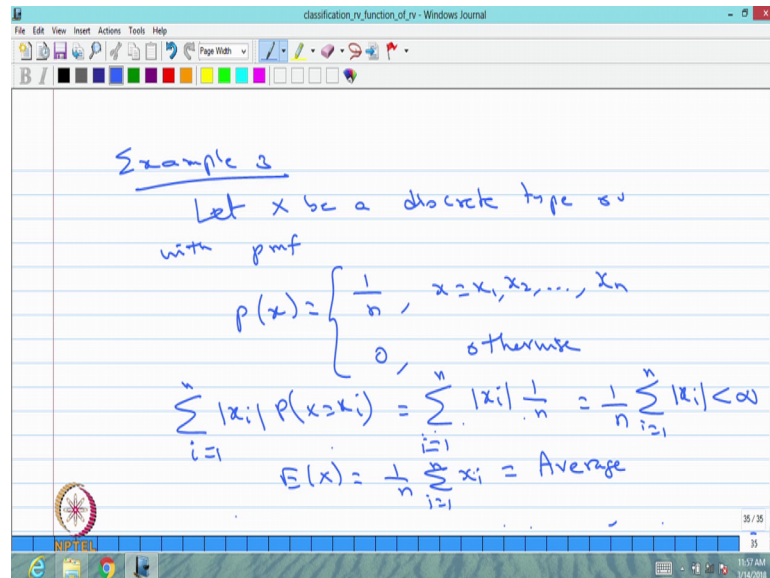 classification_rv_function_of_rv - Windows Journal
File Edit View Insert Actions Tools Help
Page Width
B I
Example 3
Let X be a discrete type rv
with pmf
p(x) = { 1/n , x = x₁, x₂, ..., xₙ
0, otherwise
∑ⁿᵢ₌₁ |xᵢ| P(X=xᵢ) = ∑ⁿᵢ₌₁ |xᵢ| 1/n = 1/n ∑ⁿᵢ₌₁ |xᵢ| < ∞
E(X) = 1/n ∑ⁿᵢ₌₁ xᵢ = Average
35 / 35
NPTEL
35
11:57 AM
1/14/2018